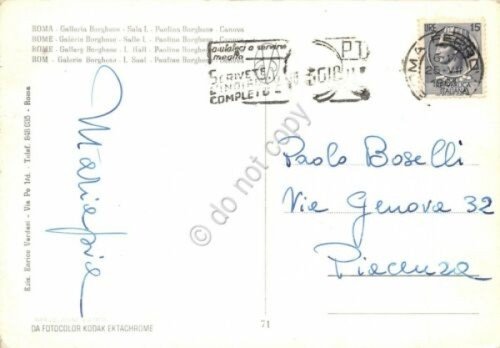 ROMA - Galleria Borghese - Sala I. - Paolina Borghese - Canova
ROME - Galerie Borghese - Salle I. - Pauline Borghese - Canova
ROME - Gallery Borghese - I. Hall - Pauline Borghese - Canova
ROM - Galerie Borghese - I. Saal - Pauline Borghese - Canova
aiutateci a servirvi
meglio
SCRIVETE
L'INDIRIZZO
COMPLETO
PT
ROMA
15
Ediz. Enrico Verdesi - Via Po 10d. Telef. 845035 - Roma
Paolo Boselli
Via Genova 32
Piacenza
DA FOTOCOLOR KODAK EKTACHROME
71
do not copy